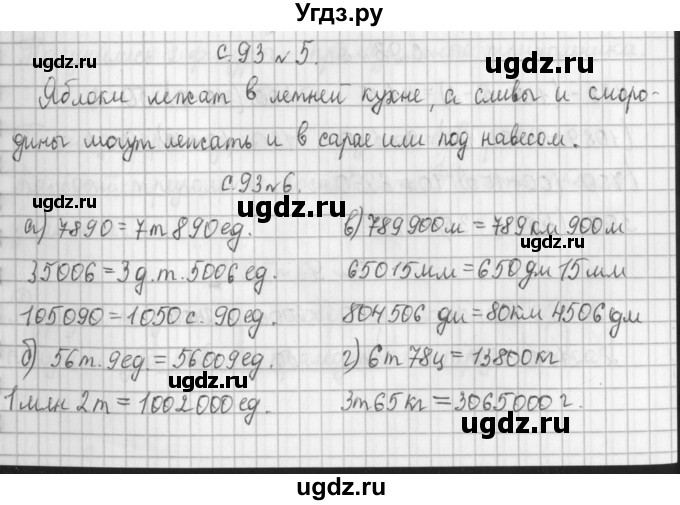 Угдз.ру
с.93 №5.
ugdz.ru ugdz.ru
Яблоки лежат в летней кухне, а сливы и сморо-
ugdz.ru
дины могут лежать и в сарае или под навесом.
с.93 №6.
ugdz.ru ugdz.ru
а) 7890 = 7т 890 ед. в) 789 900 м = 789 км 900 м
ugdz.ru
35006 = 3 д.т. 5006 ед. 65015 мм = 650 дм 15 мм
105090 = 1050 с. 90 ед. 804506 дм = 80 км 4506 дм
ugdz.ru
б) 56т. 9ед. = 56009 ед. г) 6т 78ц = 13800 кг
ugdz.ru
1 млн 2т = 1002000 ед. 3т 65 кг = 3065000 г.
ugdz.ru
ugdz.ru
ugdz.ru